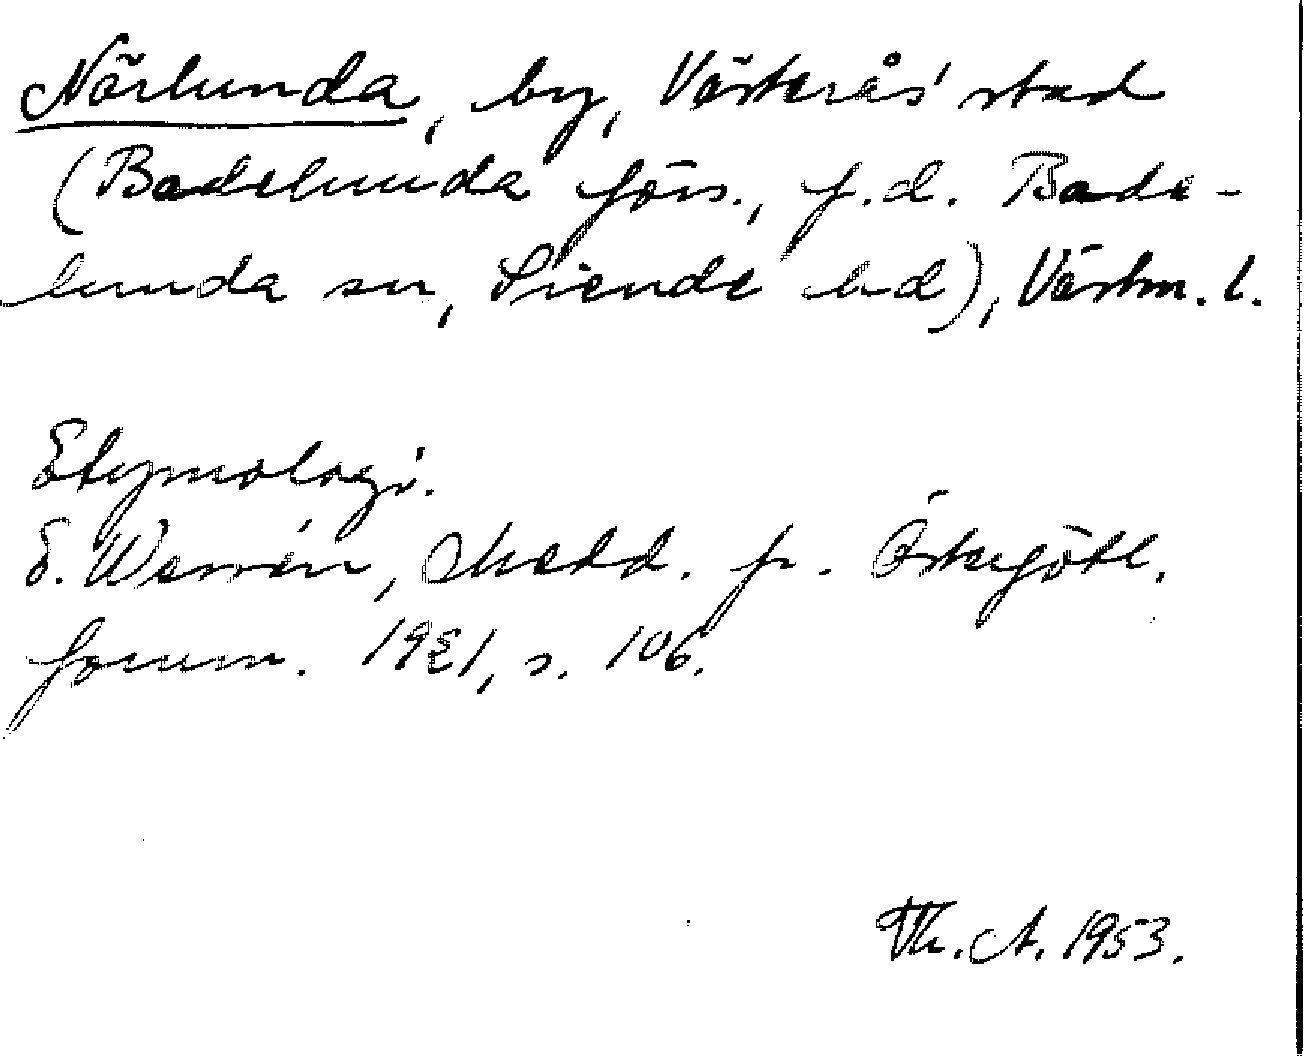 Närlunda, by, Västerås' stad
(Badelunda förs., f.d. Bade-
lunda sn, Siende hd), Västm. l.
Etymologi.
E. Wessén, Medd. fr. Östergötl.
fornm. 1921, s. 106.
Th. A. 1953.